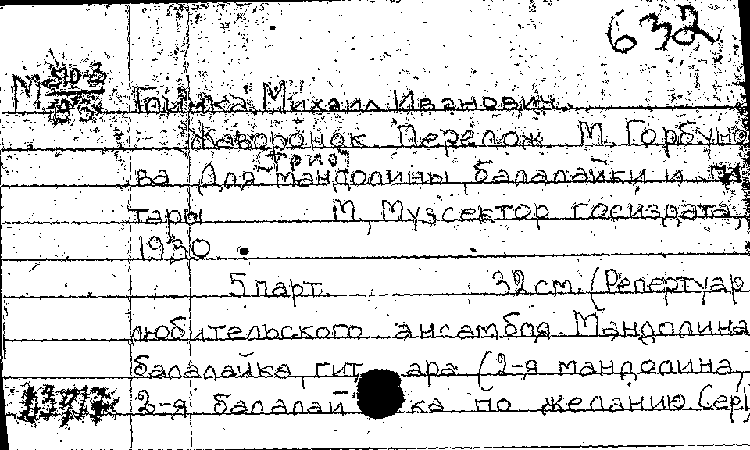 632
М 510-3
Глинка, Михаил Иванович.
Жаворонок. Перелож. М. Горбуно
(Трио)
ва Для мандолины, балалайки и ги
тары М., Музсектор госиздата,
1930.
5 парт. 32 см. (Репертуар
любительского ансамбля. Мандолина
балалайка, гитара (2-я мандолина,
2-я балалайка по желанию Сер